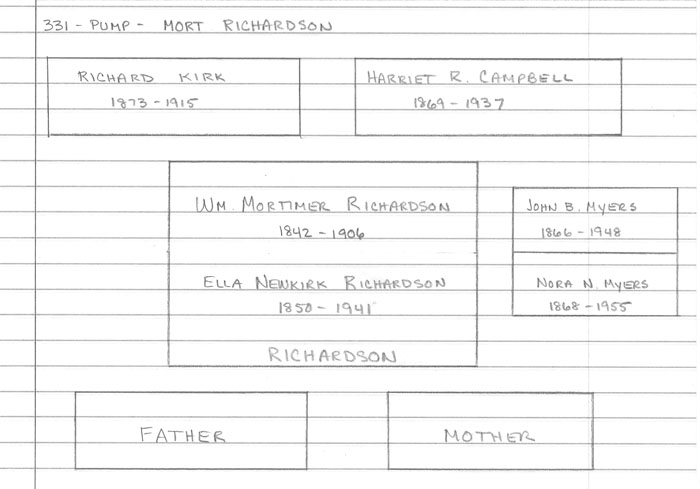 331 - PUMP - MORT RICHARDSON
RICHARD KIRK
1873 - 1915
HARRIET R. CAMPBELL
1869 - 1937
WM. MORTIMER RICHARDSON
1842 - 1906
ELLA NEWKIRK RICHARDSON
1850 - 1941
RICHARDSON
JOHN B. MYERS
1866 - 1948
NORA N. MYERS
1868 - 1955
FATHER
MOTHER